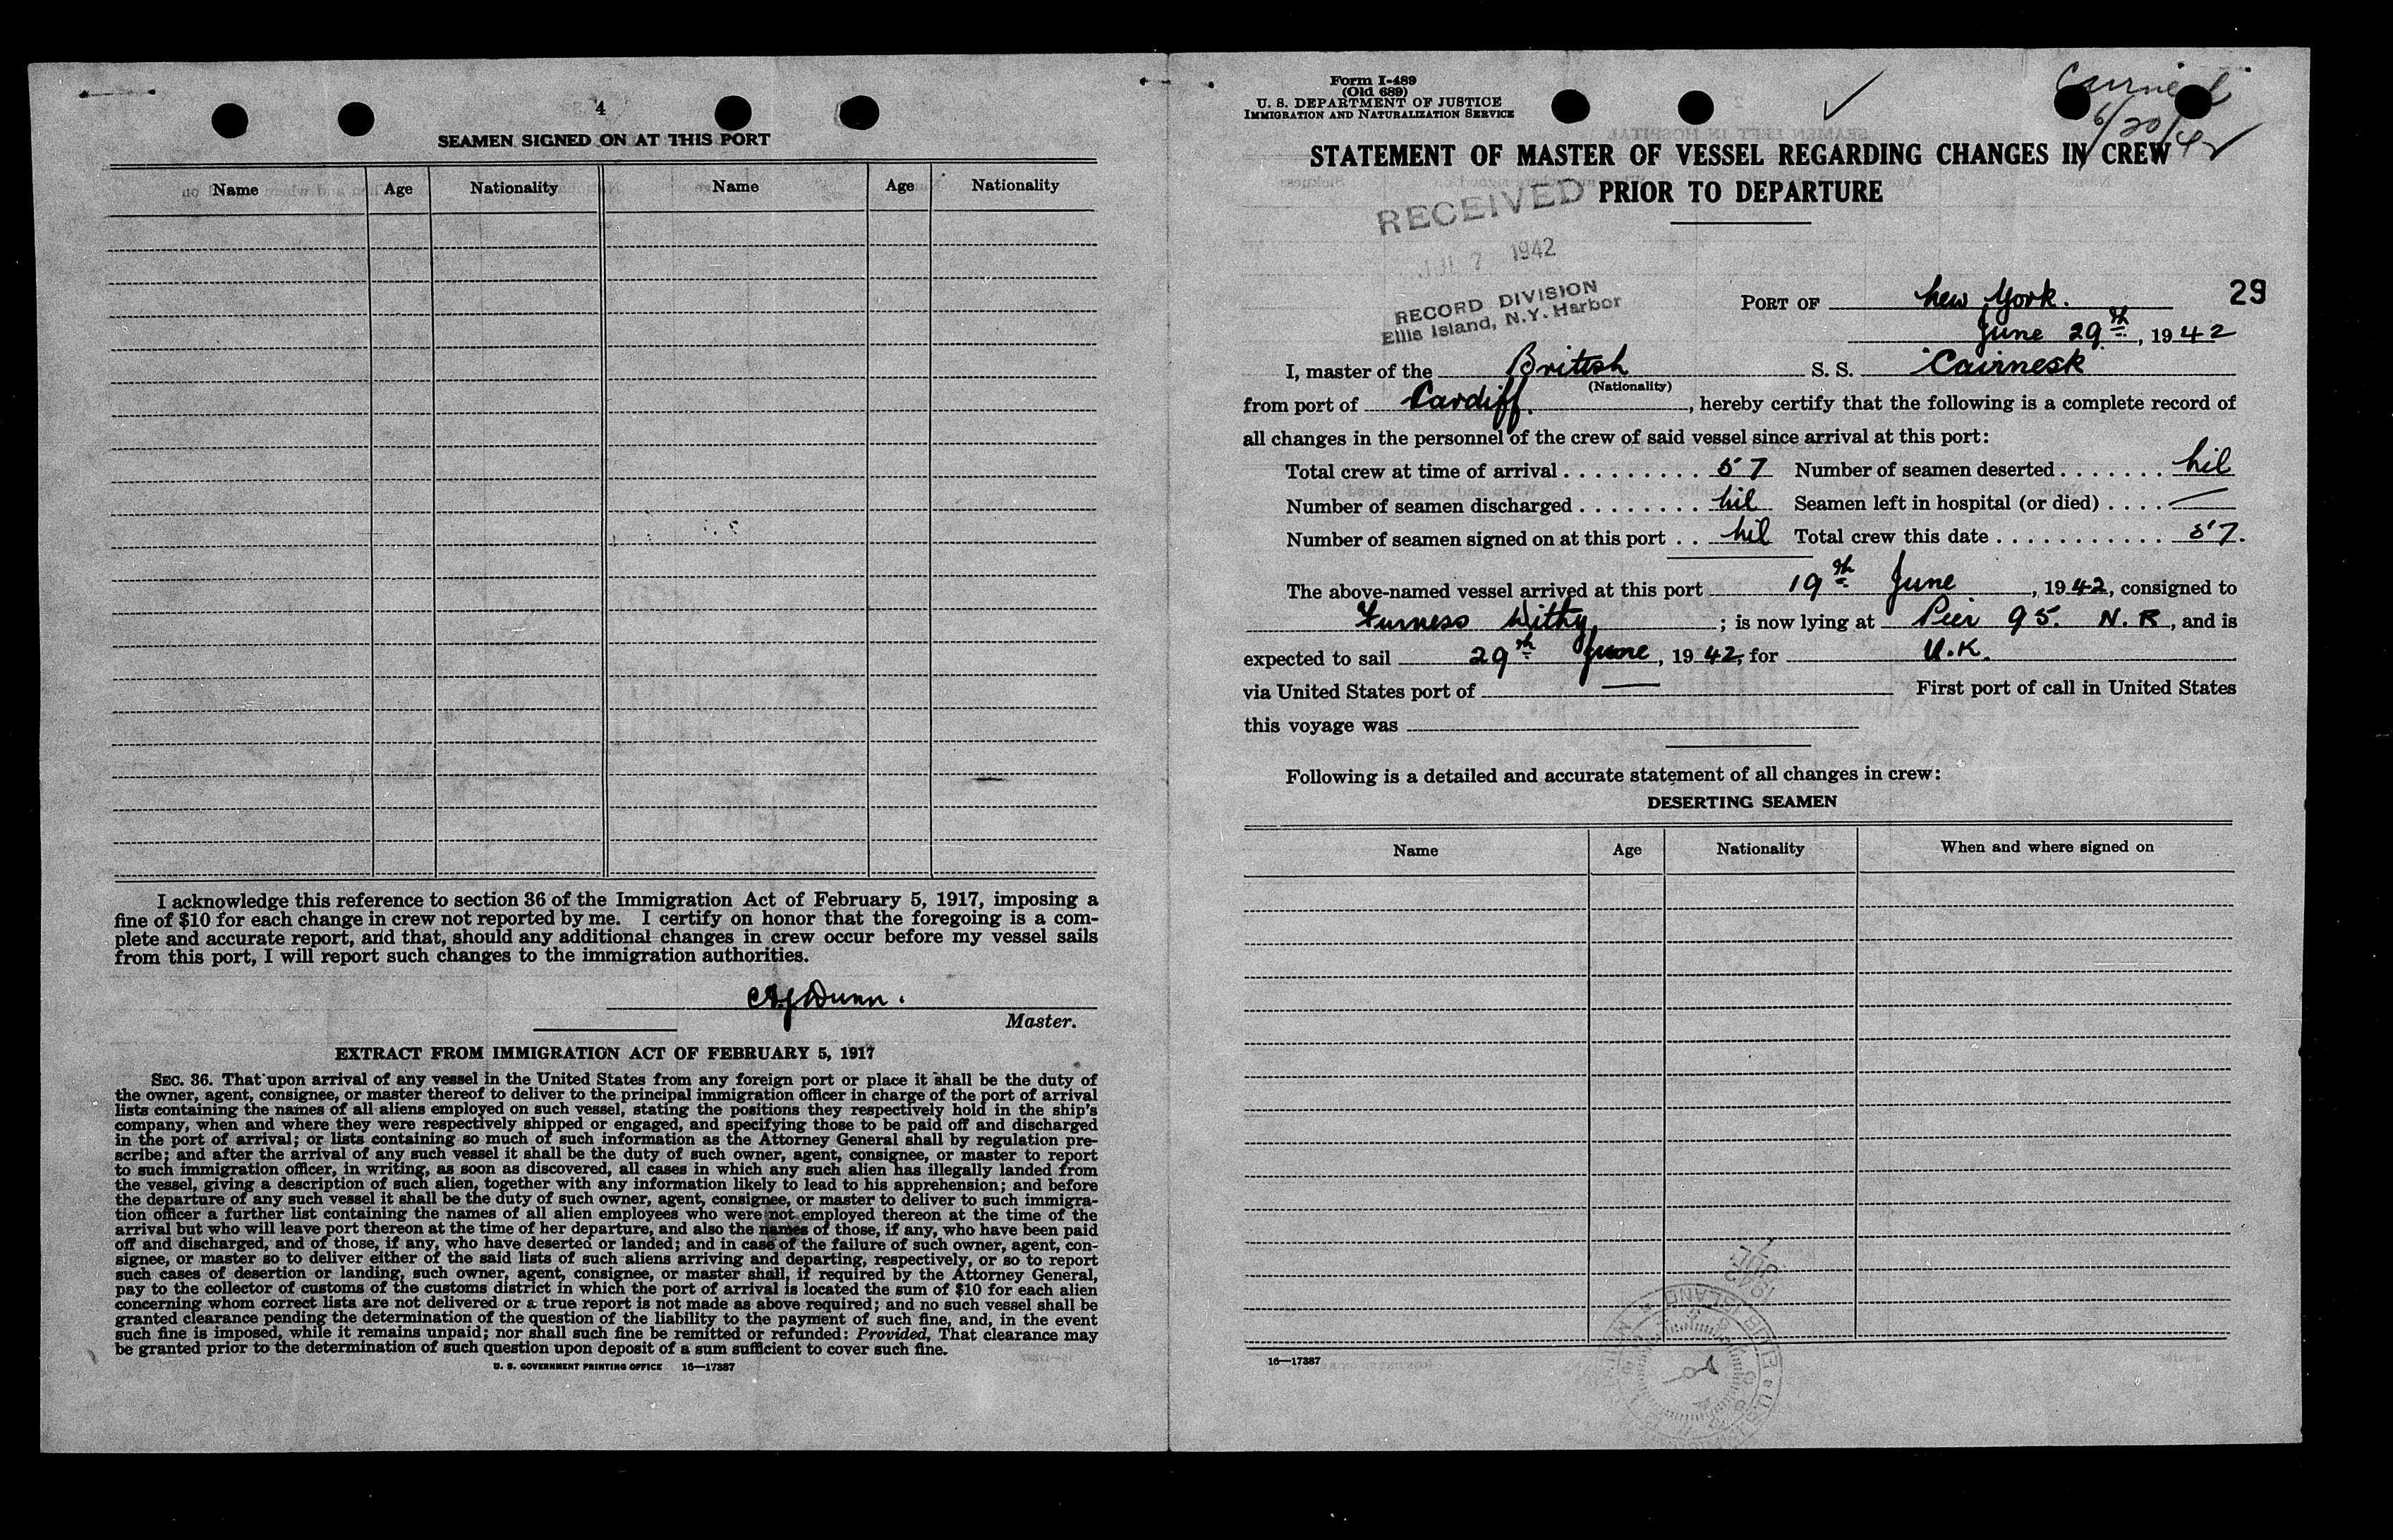 4
SEAMEN SIGNED ON AT THIS PORT
Name Age Nationality Name Age Nationality
I acknowledge this reference to section 36 of the Immigration Act of February 5, 1917, imposing a
fine of $10 for each change in crew not reported by me. I certify on honor that the foregoing is a com-
plete and accurate report, and that, should any additional changes in crew occur before my vessel sails
from this port, I will report such changes to the immigration authorities.
Dunn.
Master.
EXTRACT FROM IMMIGRATION ACT OF FEBRUARY 5, 1917
SEC. 36. That upon arrival of any vessel in the United States from any foreign port or place it shall be the duty of
the owner, agent, consignee, or master thereof to deliver to the principal immigration officer in charge of the port of arrival
lists containing the names of all aliens employed on such vessel, stating the positions they respectively hold in the ship's
company, when and where they were respectively shipped or engaged, and specifying those to be paid off and discharged
in the port of arrival; or lists containing so much of such information as the Attorney General shall by regulation pre-
scribe; and after the arrival of any such vessel it shall be the duty of such owner, agent, consignee, or master to report
to such immigration officer, in writing, as soon as discovered, all cases in which any such alien has illegally landed from
the vessel, giving a description of such alien, together with any information likely to lead to his apprehension; and before
the departure of any such vessel it shall be the duty of such owner, agent, consignee, or master to deliver to such immigra-
tion officer a further list containing the names of all alien employees who were not employed thereon at the time of the
arrival but who will leave port thereon at the time of her departure, and also the names of those, if any, who have been paid
off and discharged, and of those, if any, who have deserted or landed; and in case of the failure of such owner, agent, con-
signee, or master so to deliver either of the said lists of such aliens arriving and departing, respectively, or so to report
such cases of desertion or landing, such owner, agent, consignee, or master shall, if required by the Attorney General,
pay to the collector of customs of the customs district in which the port of arrival is located the sum of $10 for each alien
concerning whom correct lists are not delivered or a true report is not made as above required; and no such vessel shall be
granted clearance pending the determination of the question of the liability to the payment of such fine, and, in the event
such fine is imposed, while it remains unpaid; nor shall such fine be remitted or refunded: Provided, That clearance may
be granted prior to the determination of such question upon deposit of a sum sufficient to cover such fine.
U. S. GOVERNMENT PRINTING OFFICE 16—17387
Form I-489
(Old 689)
U. S. DEPARTMENT OF JUSTICE
IMMIGRATION AND NATURALIZATION SERVICE
6/20/42
STATEMENT OF MASTER OF VESSEL REGARDING CHANGES IN CREW
PRIOR TO DEPARTURE
RECEIVED
JUL 7 1942
RECORD DIVISION
Ellis Island, N.Y. Harbor
PORT OF New York. 29
June 29th, 1942
I, master of the British S. S. "Cairnesk"
(Nationality)
from port of Cardiff., hereby certify that the following is a complete record of
all changes in the personnel of the crew of said vessel since arrival at this port:
Total crew at time of arrival . . . . . . . . . 57 Number of seamen deserted . . . . . . . Nil
Number of seamen discharged . . . . . . . . Nil Seamen left in hospital (or died) . . . . —
Number of seamen signed on at this port . . Nil Total crew this date . . . . . . . . . . . 57.
The above-named vessel arrived at this port 19th June, 1942, consigned to
Furness Withy; is now lying at Pier 95. N.R, and is
expected to sail 29th June, 1942, for U.K.
via United States port of — First port of call in United States
this voyage was
Following is a detailed and accurate statement of all changes in crew:
DESERTING SEAMEN
Name Age Nationality When and where signed on
16—17387